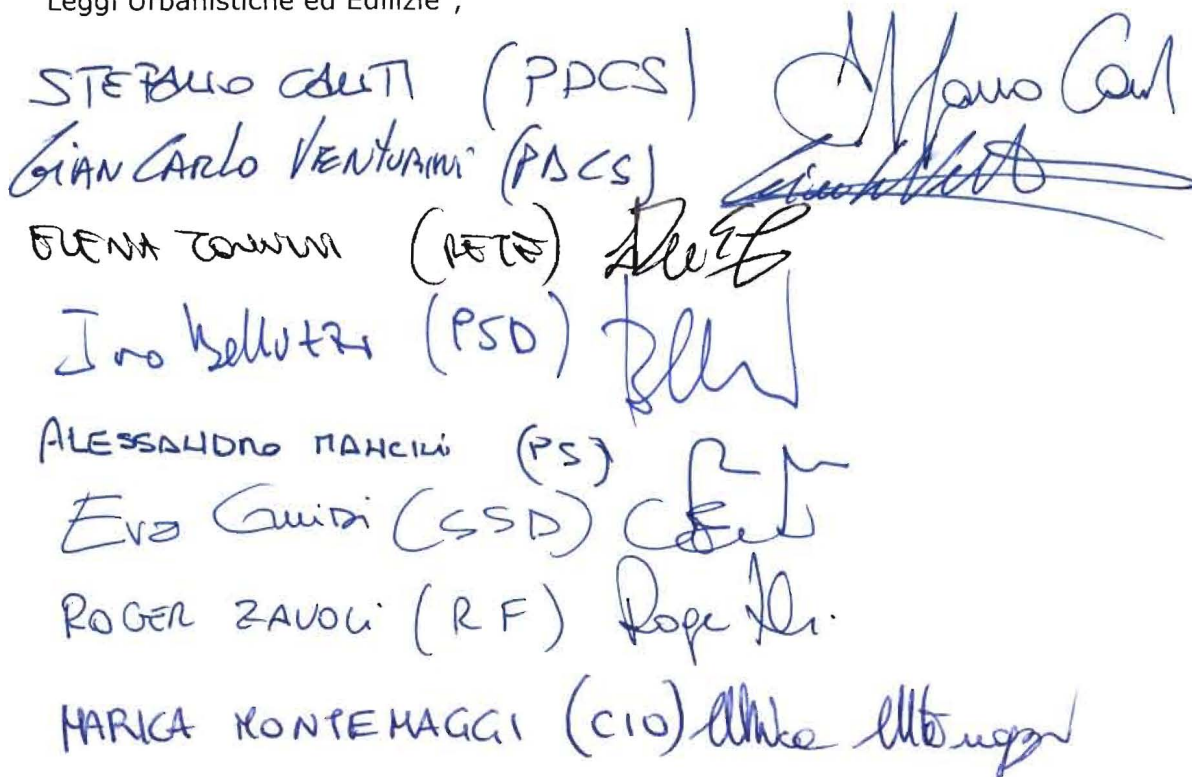 Leggi Urbanistiche ed Edilizie",
STEFANO CANTI (PDCS)
GIAN CARLO VENTURINI (PDCS)
ELENA TONNINI (RETE)
Iro Belluzzi (PSD)
ALESSANDRO MANCINI (PS)
Eva Guidi (SSD)
ROGER ZAVOLI (RF) Roger
MARICA MONTEMAGGI (C10)